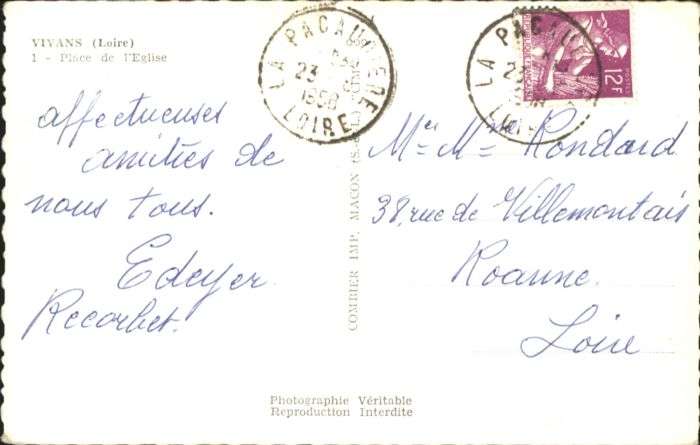 VIVANS (Loire)
1 - Place de l'Eglise
LA PACAUDIERE
23
1958
LOIRE
LA PACAU
LOIRE
12F
affectueuses
amitiés de
nous tous.
Edeyer
Recorbet.
COMBIER IMP. MACON
Mr et Mme Rondard
38, rue de Villemontais
Roanne.
Loire
Photographie Véritable
Reproduction Interdite